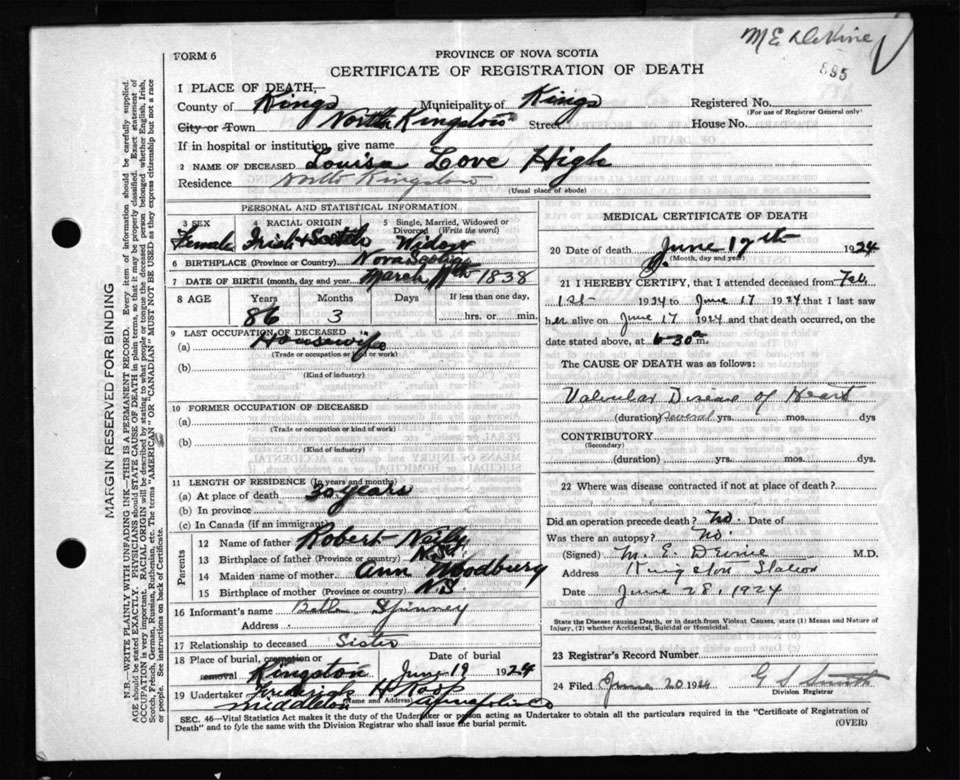 M E DeVine
895
FORM 6
PROVINCE OF NOVA SCOTIA
CERTIFICATE OF REGISTRATION OF DEATH
1 PLACE OF DEATH,
County of Kings Municipality of Kings Registered No.
(For use of Registrar General only)
City or Town North Kingston Street House No.
If in hospital or institution, give name
2 NAME OF DECEASED Louisa Love High
Residence North Kingston
(Usual place of abode)
PERSONAL AND STATISTICAL INFORMATION
3 SEX 4 RACIAL ORIGIN 5 Single, Married, Widowed or Divorced (Write the word)
Female Irish & Scotch Widow
6 BIRTHPLACE (Province or Country) Nova Scotia
7 DATE OF BIRTH (month, day and year) March 1838
8 AGE Years Months Days If less than one day,
86 3 hrs. or min.
9 LAST OCCUPATION OF DECEASED
(a) Housewife
(Trade or occupation or kind of work)
(b)
(Kind of industry)
10 FORMER OCCUPATION OF DECEASED
(a)
(Trade or occupation or kind of work)
(b)
(Kind of industry)
11 LENGTH OF RESIDENCE (In years and months)
(a) At place of death 30 years
(b) In province
(c) In Canada (if an immigrant)
Parents
12 Name of father Robert Neily
13 Birthplace of father (Province or country) N.S.
14 Maiden name of mother Ann Woodbury
15 Birthplace of mother (Province or country) N.S.
16 Informant's name Spinney
Address
17 Relationship to deceased Sister
18 Place of burial, cremation or removal Date of burial
Kingston June 19 1924
19 Undertaker Frederick H Roop
(Name and Address)
Middleton Annapolis Co
MEDICAL CERTIFICATE OF DEATH
20 Date of death June 17th 1924
(Month, day and year)
21 I HEREBY CERTIFY, that I attended deceased from Feb
1st 1924 to June 17 1924 that I last saw
her alive on June 17 1924 and that death occurred, on the
date stated above, at 6-30 m.
THE CAUSE OF DEATH was as follows:
Valvular Disease of Heart
(duration) several yrs. mos. dys
CONTRIBUTORY
(Secondary)
(duration) yrs. mos. dys
22 Where was disease contracted if not at place of death?
Did an operation precede death? No. Date of
Was there an autopsy? No.
(Signed) M. E. DeVine M.D.
Address Kingston Station
Date June 28, 1924
State the Disease causing Death, or in death from Violent Causes, state (1) Means and Nature of
Injury, (2) whether Accidental, Suicidal or Homicidal.
23 Registrar's Record Number
24 Filed June 20 1924 G S Smith
Division Registrar
SEC. 46—Vital Statistics Act makes it the duty of the Undertaker or person acting as Undertaker to obtain all the particulars required in the "Certificate of Registration of
Death" and to fyle the same with the Division Registrar who shall issue the burial permit. (OVER)
MARGIN RESERVED FOR BINDING
N.B.—WRITE PLAINLY WITH UNFADING INK—THIS IS A PERMANENT RECORD. Every item of information should be carefully supplied.
AGE should be stated EXACTLY. PHYSICIANS should STATE CAUSE OF DEATH in plain terms, so that it may be properly classified. Exact statement of
OCCUPATION is very important. RACIAL ORIGIN will be described by stating to what people or tongue the deceased person belonged whether English, Irish,
Scotch, French, German, Russian, Ruthenian, etc. The terms "AMERICAN" or "CANADIAN" MUST NOT BE USED as they express citizenship but not a race
or people. See instructions on back of Certificate.